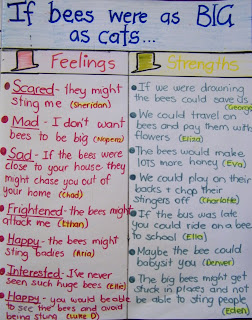 If bees were as BIG
as cats...
Feelings
• Scared - they might
sting me (Sheridan)
• Mad - I don't want
bees to be big (Ngaere)
• Sad - If the bees were
close to your house they
might chase you out of
your home (Chad)
• Frightened - the bees might
attack me (Ethan)
• Happy - the bees might
sting badies (Aria)
• Interested - I've never
seen such huge bees (Ellie)
• Happy - you would be able
to see the bees and avoid
being stung (Luke D)
Strengths
• If we were drowning
the bees could save us
(George)
• We could travel on
bees and pay them with
flowers (Eliza)
• The bees would make
lots more honey (Eva)
• We could play on their
backs + chop their
stingers off (Charlotte)
• If the bus was late
you could ride on a bee
to school (Ella)
• Maybe the bee could
babysit you (Denver)
• The big bees might get
stuck in places and not
be able to sting people
(Eden)